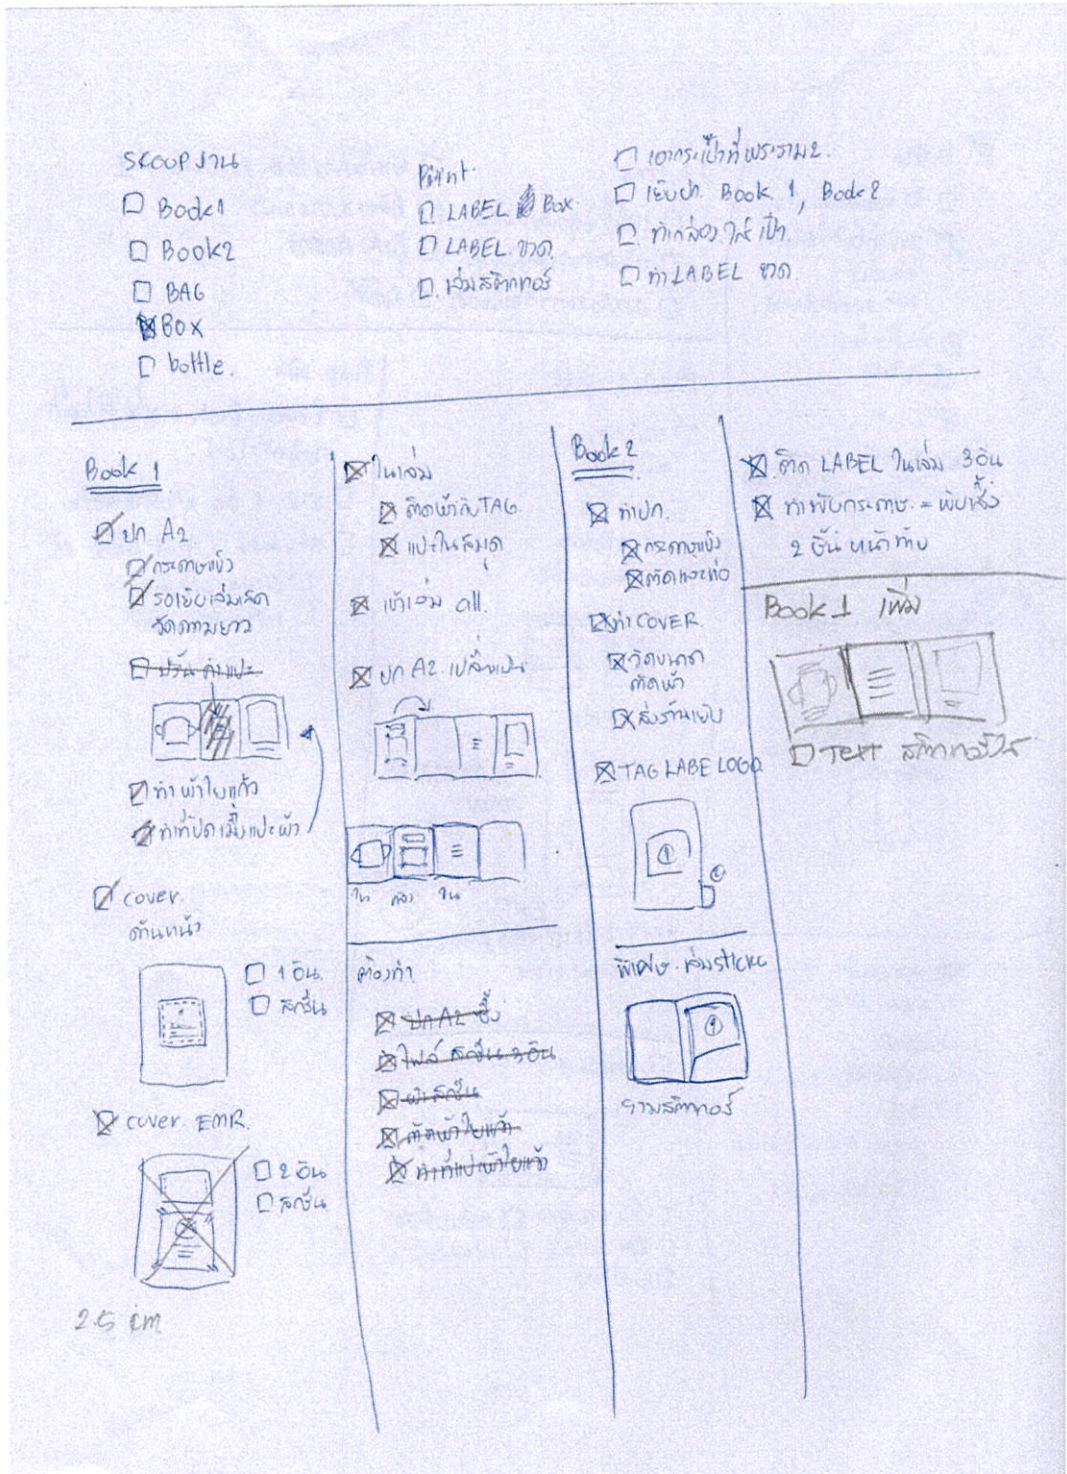 SCOUP งาน
Book1
Book2
BAG
BOX
bottle.
Print.
LABEL Box
LABEL ขวด.
เล่มสติกเกอร์
เอากระเป๋าที่พระราม2.
เย็บปก Book 1, Book 2
ทำกล่องใส่เป๋า
ทำ LABEL ขวด.
Book 1
ปก A2
กระดาษแข็ง
รอเย็บเล่มเสร็จ
วัดความยาว
ทำผ้าใบแก้ว
cover.
ด้านหน้า
1 อัน
สกรีน
cover. EMR.
2 อัน
สกรีน
2.5 cm
ในเล่ม
ติดผ้ากับ TAG.
แปะในสมุด
เข้าเล่ม all.
ปก A2
ใน
ใน
ต้องทำ
ปก A2
ไฟล์ สกรีน 3 อัน
ผ้าสกรีน
ตัดผ้าใบแก้ว
ทำที่แปะผ้าใบแก้ว
Book 2
ทำปก.
กระดาษแข็ง
ทำ COVER.
วัดขนาด
ตัดผ้า
ส่งร้านเย็บ
TAG LABE LOGO
1
พิเศษ. เล่ม sticker
รวมสติกเกอร์
ติด LABEL ในเล่ม 3 อัน
2 ชิ้น หน้าท้าย
Book 1 เพิ่ม
TEXT สติกเกอร์ใส